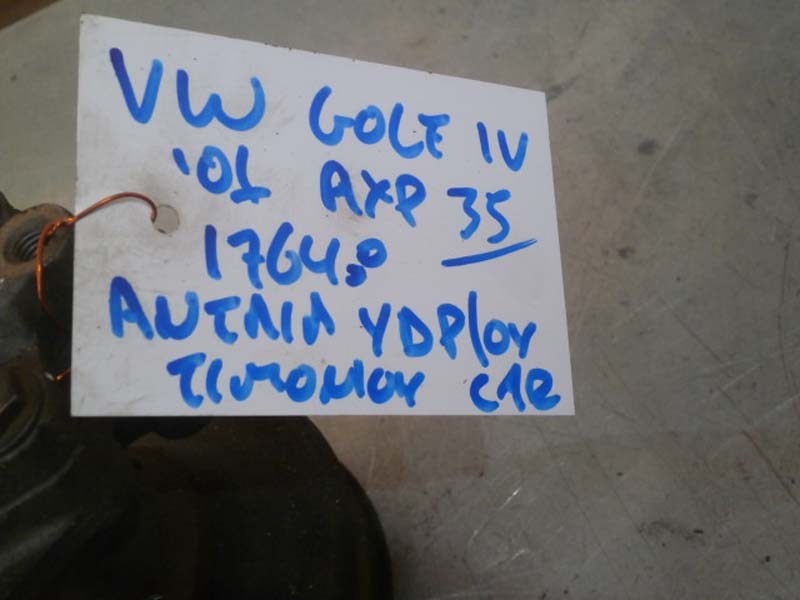 VW GOLF IV
'01 AXP 35
1764,0
ΑΝΤΛΙΑ ΥΔΡ/ΟΥ
ΤΙΜΟΝΙΟΥ